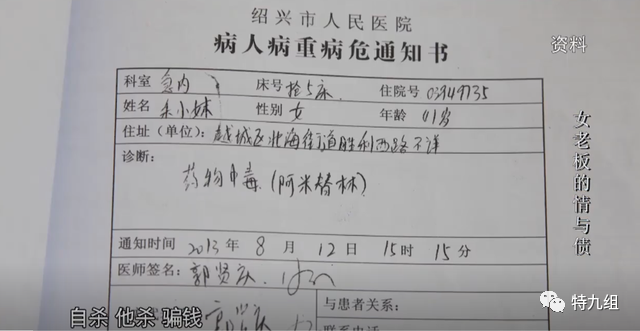 绍兴市人民医院
资料
病人病重病危通知书
科室 急内 床号 抢5床 住院号 03949735
姓名 朱小妹 性别 女 年龄 41岁
住址(单位): 越城区北海街道胜利西路不详
诊断:
药物中毒(阿米替林)
通知时间 2013 年 8 月 12 日 15 时 15 分
医师签名: 郭贤庆
与患者关系:
郭贤庆
联系电话
女老板的情与债
自杀 他杀 骗钱
特九组